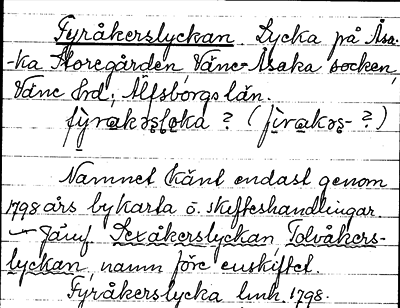 Fyråkerslyckan. Lycka på Åsa-
-ka Storegården, Väne-Åsaka socken,
Väne Hrd, Älfsborgs län.
fy̆rakəşļơka ? (fìrakəş- ?)
Namnet känt endast genom
1798 års bykarta o. skifteshandlingar.
Jämf. Sexåkerslyckan, Tolvåkers-
lyckan, namn före enskiftet.
Fyråkerslycka lmh. 1798.